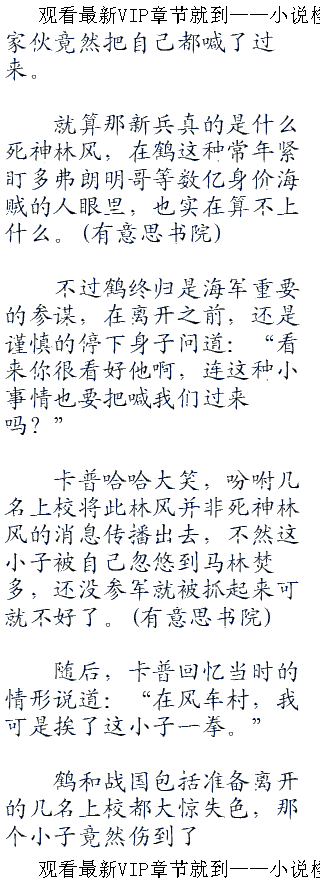 观看最新VIP章节就到——小说检
家伙竟然把自己都喊了过
来。
就算那新兵真的是什么
死神林风，在鹤这种常年紧
盯多弗朗明哥等数亿身价海
贼的人眼里，也实在算不上
什么。(有意思书院)
不过鹤终归是海军重要
的参谋，在离开之前，还是
谨慎的停下身子问道：“看
来你很看好他啊，连这种小
事情也要把喊我们过来
吗？”
卡普哈哈大笑，吩咐几
名上校将此林风并非死神林
风的消息传播出去，不然这
小子被自己忽悠到马林焚
多，还没参军就被抓起来可
就不好了。(有意思书院)
随后，卡普回忆当时的
情形说道：“在风车村，我
可是挨了这小子一拳。”
鹤和战国包括准备离开
的几名上校都大惊失色，那
个小子竟然伤到了
观看最新VIP章节就到——小说检